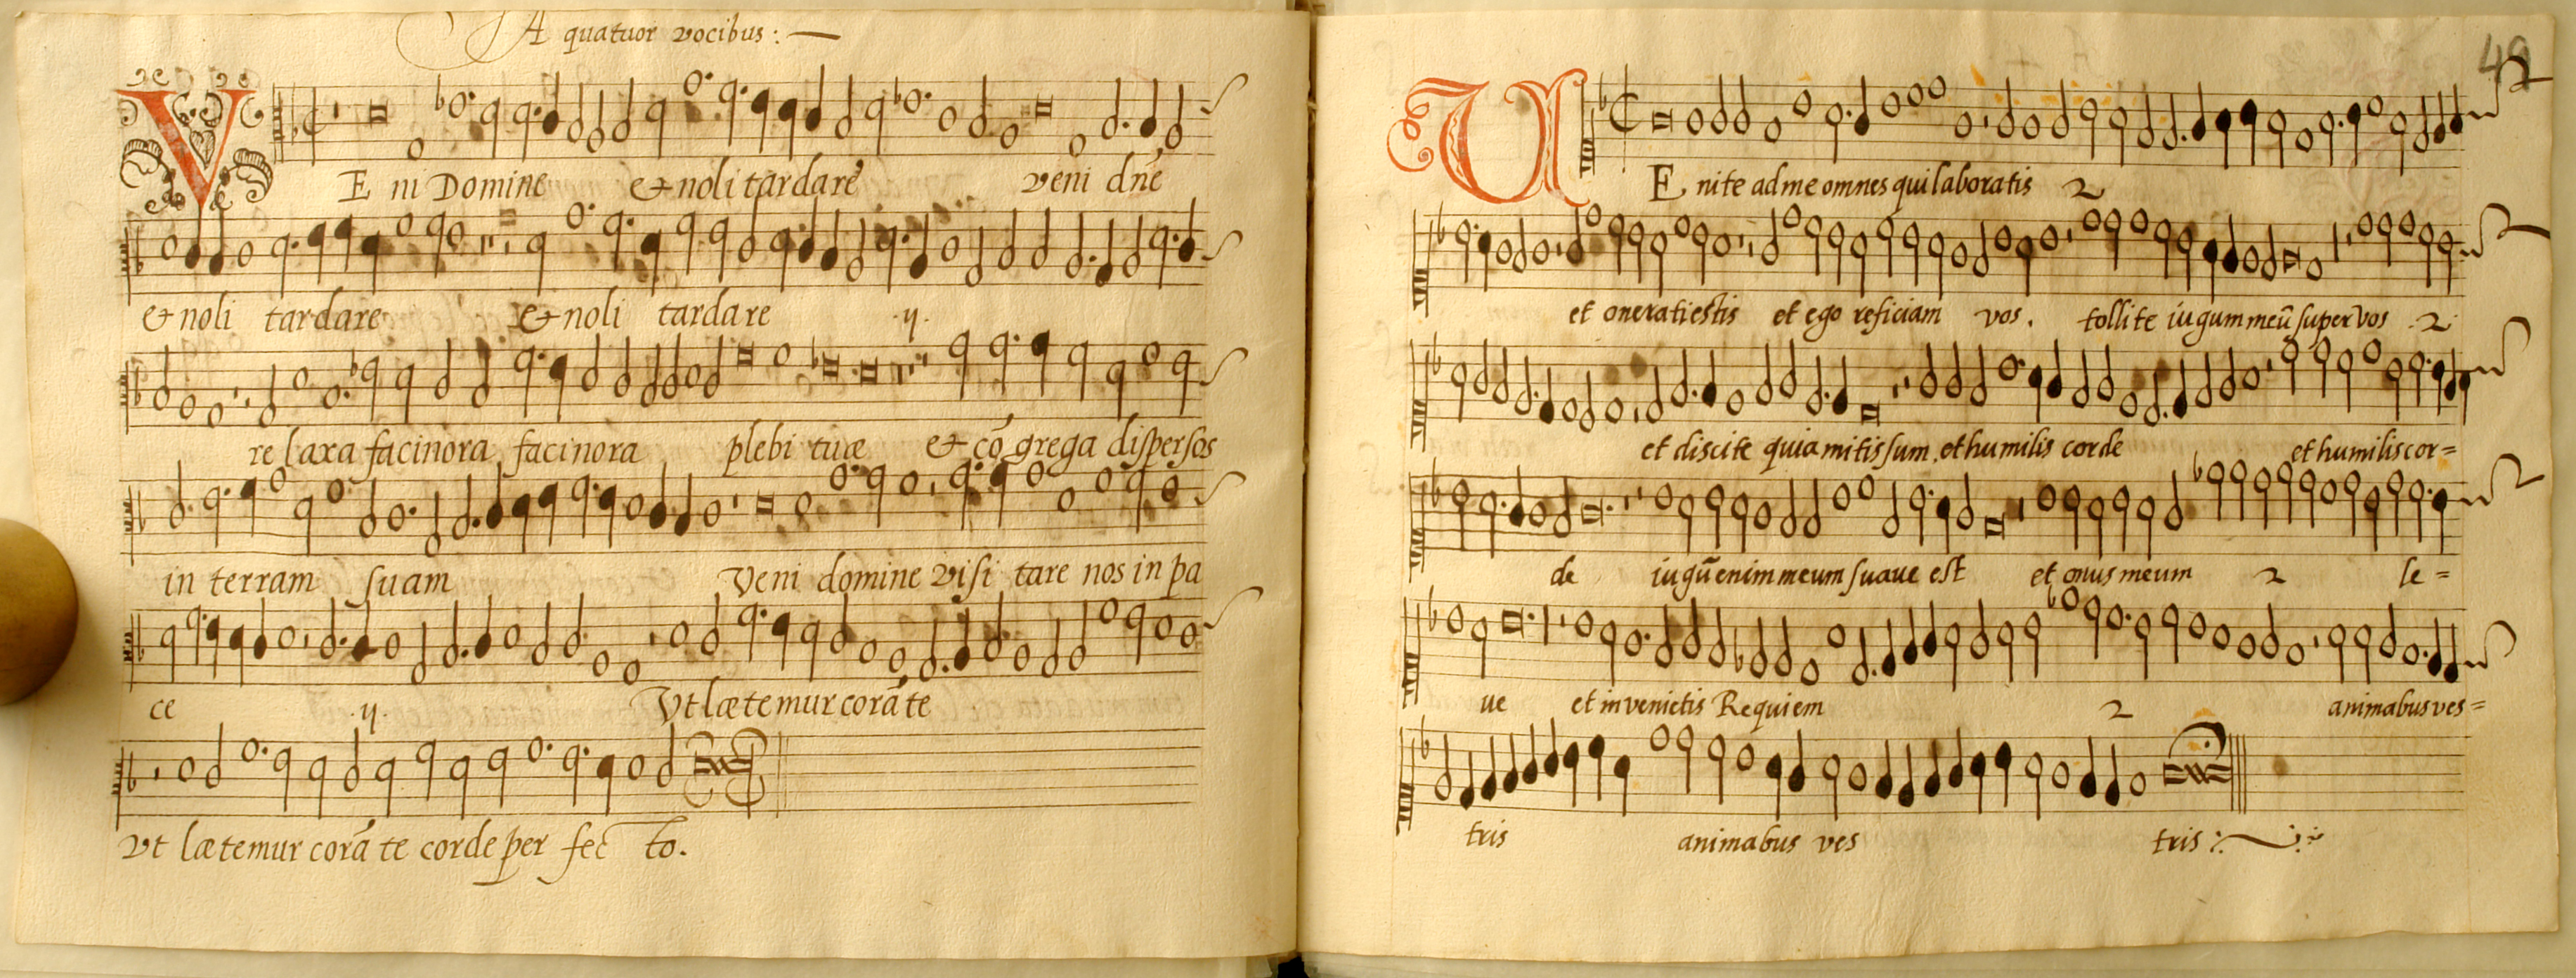 A quatuor vocibus :
VE ni Domine & noli tardare veni dñe
& noli tardare & noli tardare .ij.
relaxa facinora facinora plebi tuæ & cõ grega dispersos
in terram suam Veni domine visi tare nos in pa
ce .ij. Vt lætemur corã te
Vt lætemur corã te corde per fec to.
49
VE nite ad me omnes qui laboratis 2
et onerati estis et ego reficiam vos. tollite iugum meũ super vos .2.
et discite quia mitis sum et humilis corde et humilis cor=
de iugũ enim meum suaue est et onus meum 2 le=
ue et invenietis Requiem 2 animabus ves=
tris animabus ves tris :